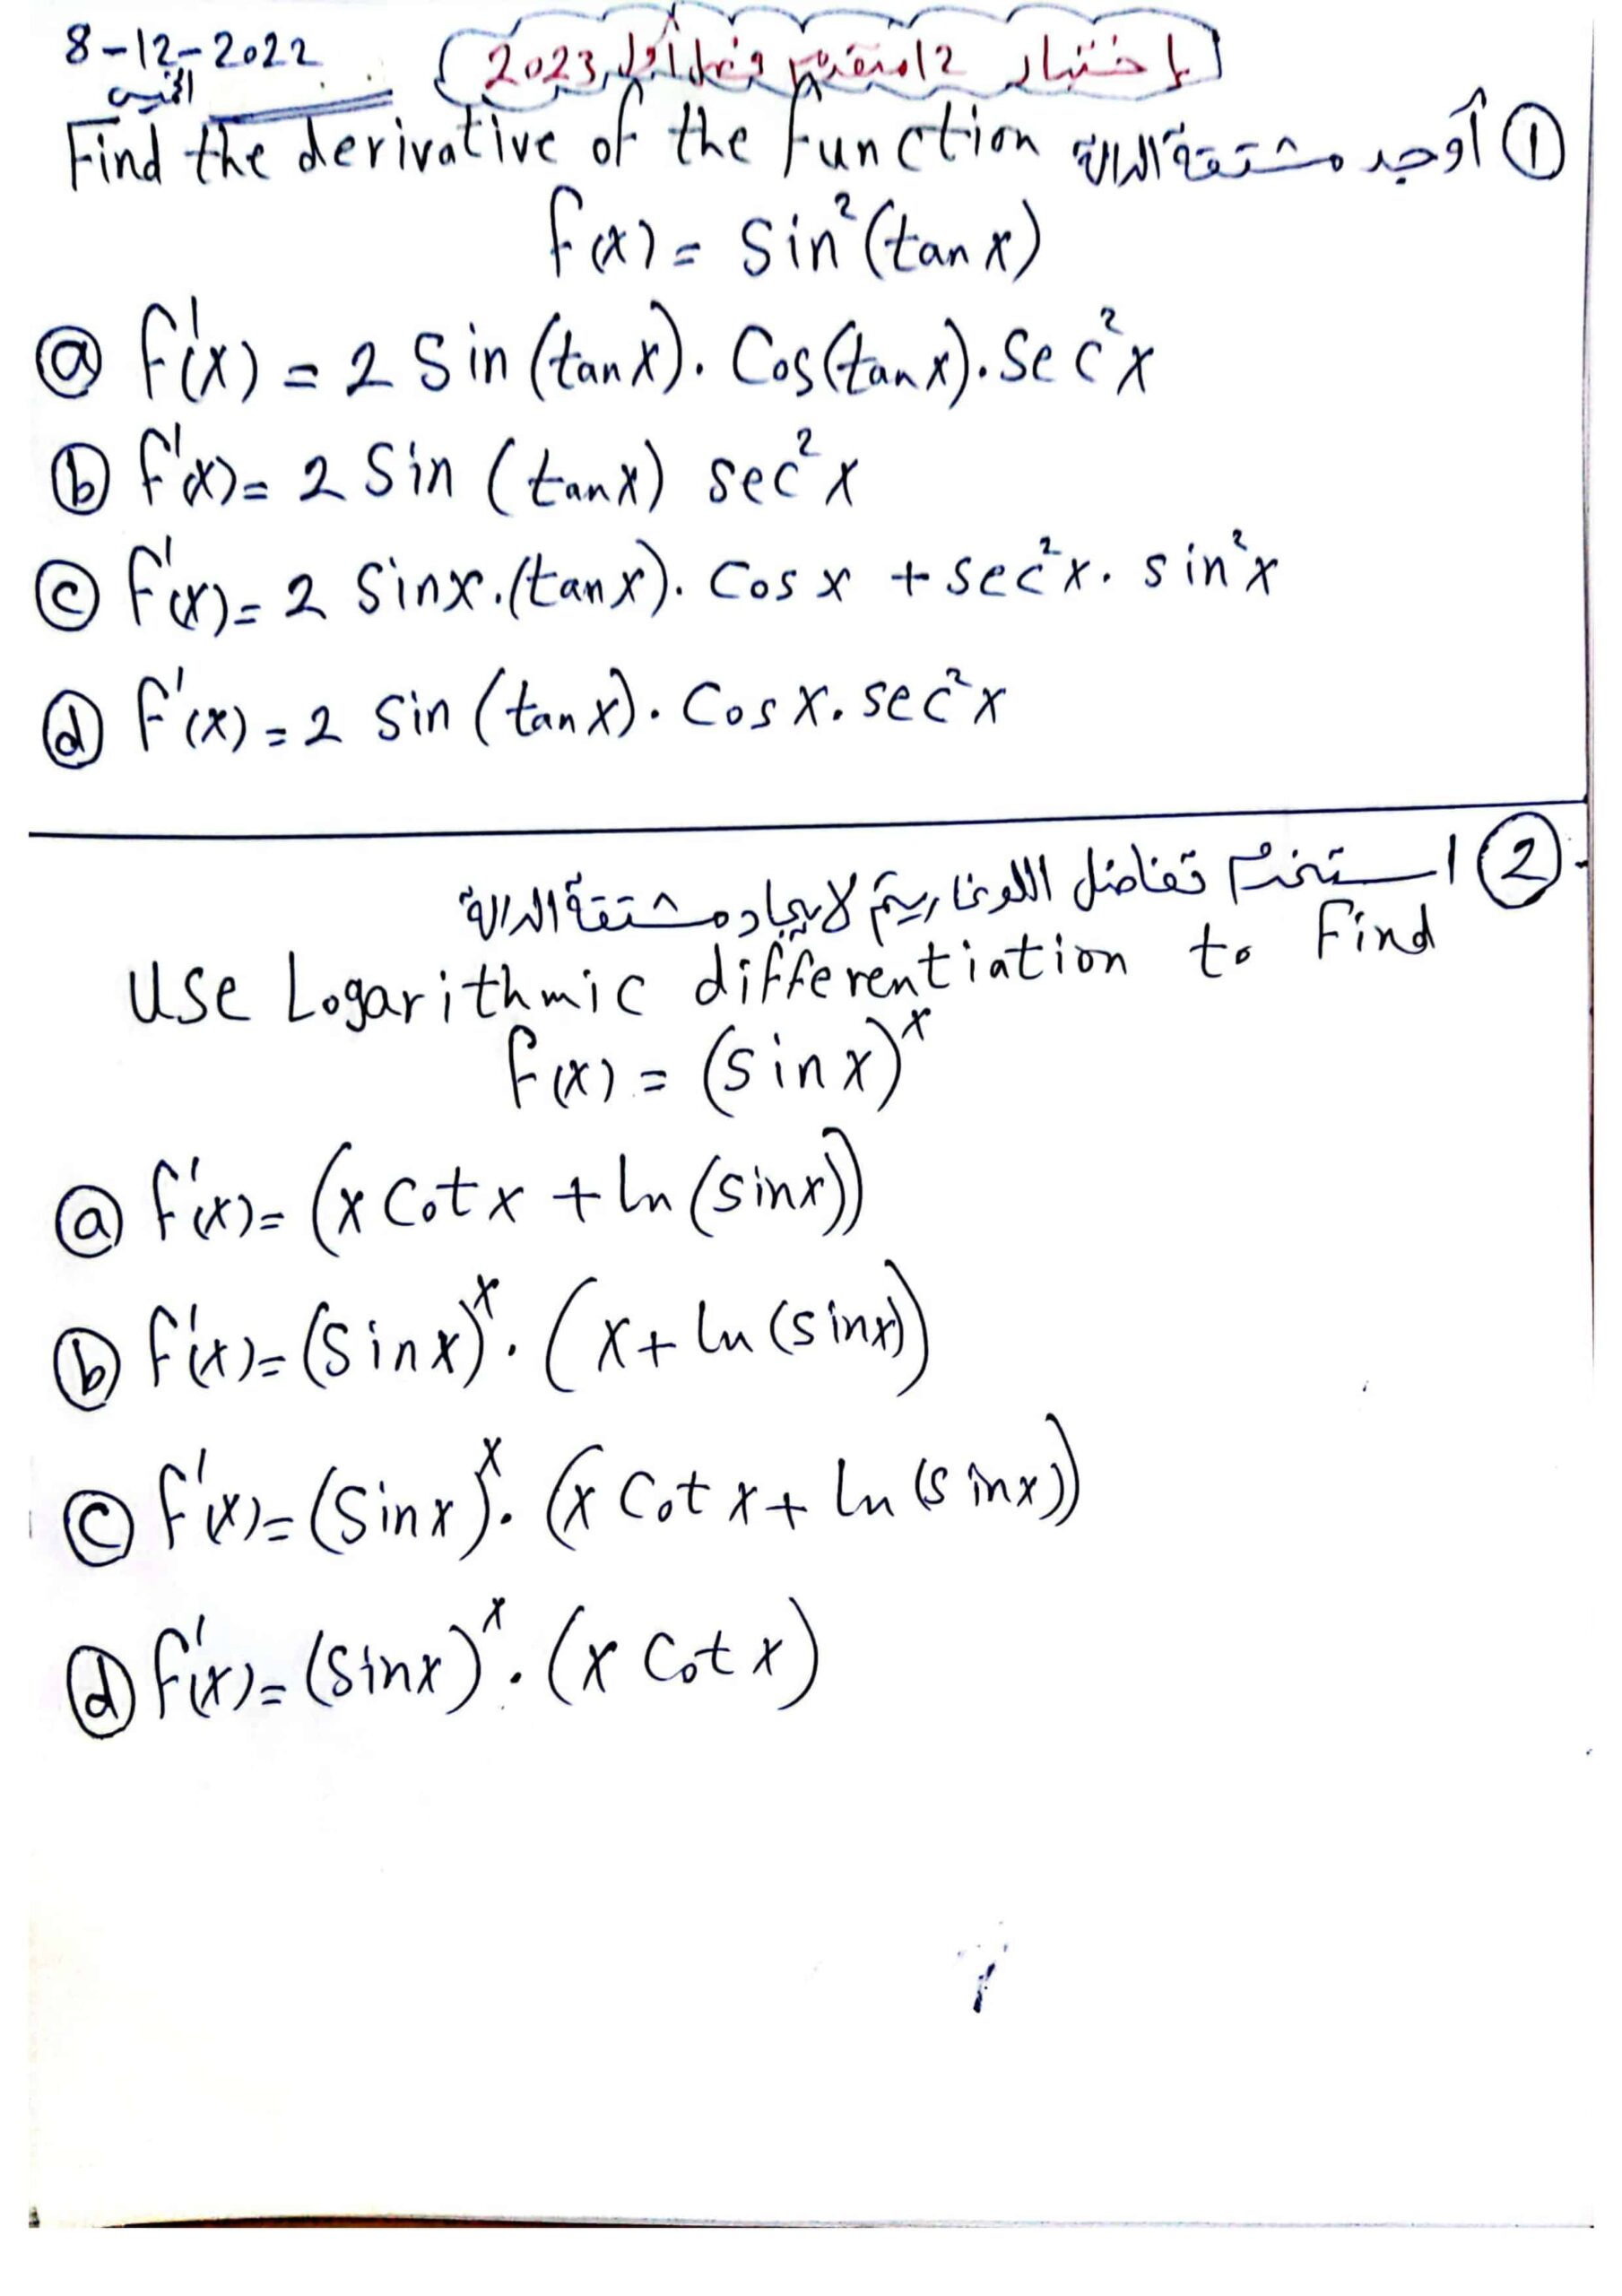 8-12-2022
الخميس
إختبار 12 متقدم فصل أول 2023
① أوجد مشتقة الدالة
Find the derivative of the function
f(x) = sin²(tan x)
ⓐ f'(x) = 2 Sin (tan x). Cos(tan x). Sec²x
ⓑ f'(x) = 2 Sin (tan x) sec²x
ⓒ f'(x) = 2 Sinx.(tan x). Cos x + sec²x. sin²x
ⓓ f'(x) = 2 Sin (tan x). Cos x. sec²x
② استخدم تفاضل اللوغاريتم لايجاد مشتقة الدالة
Use Logarithmic differentiation to Find
f(x) = (sin x)ˣ
ⓐ f'(x) = (x Cot x + ln (sinx))
ⓑ f'(x) = (Sin x)ˣ. (x + ln (sinx))
ⓒ f'(x) = (Sin x)ˣ. (x Cot x + ln (sinx))
ⓓ f'(x) = (Sinx)ˣ. (x Cot x)